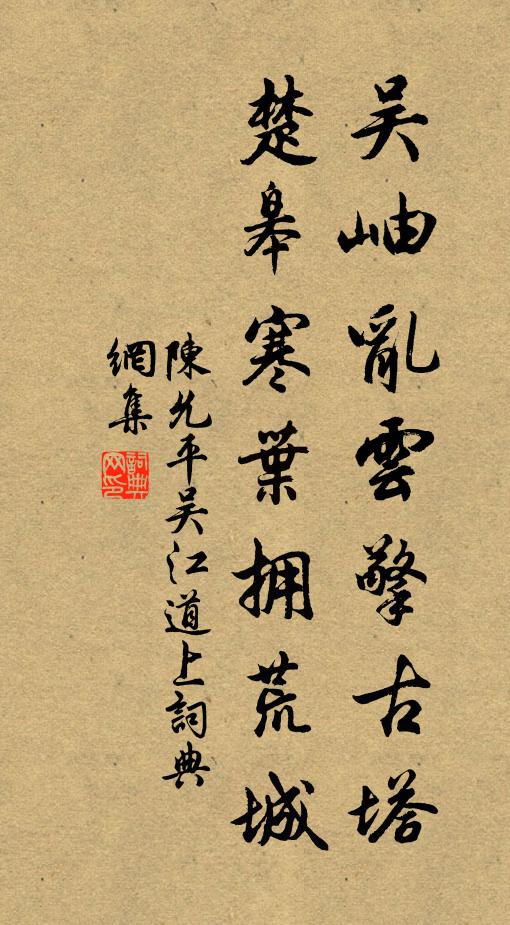 吳岫亂雲擎古塔
楚皋寒葉拥荒城
陳允平吴江道上詞典
網集
詞典
网印